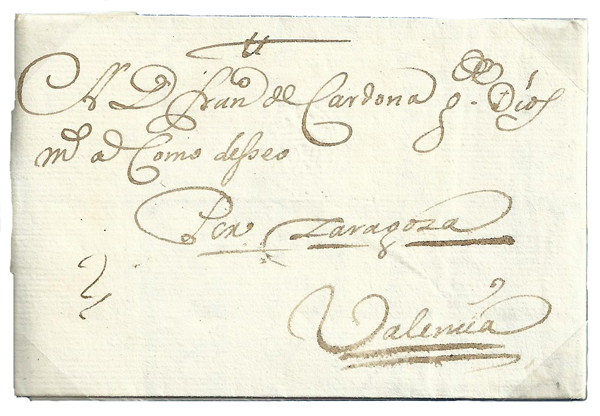 A Dn Franco de Cardona g. Dios
ms as Como desseo
Por Zaragoza
Valencia